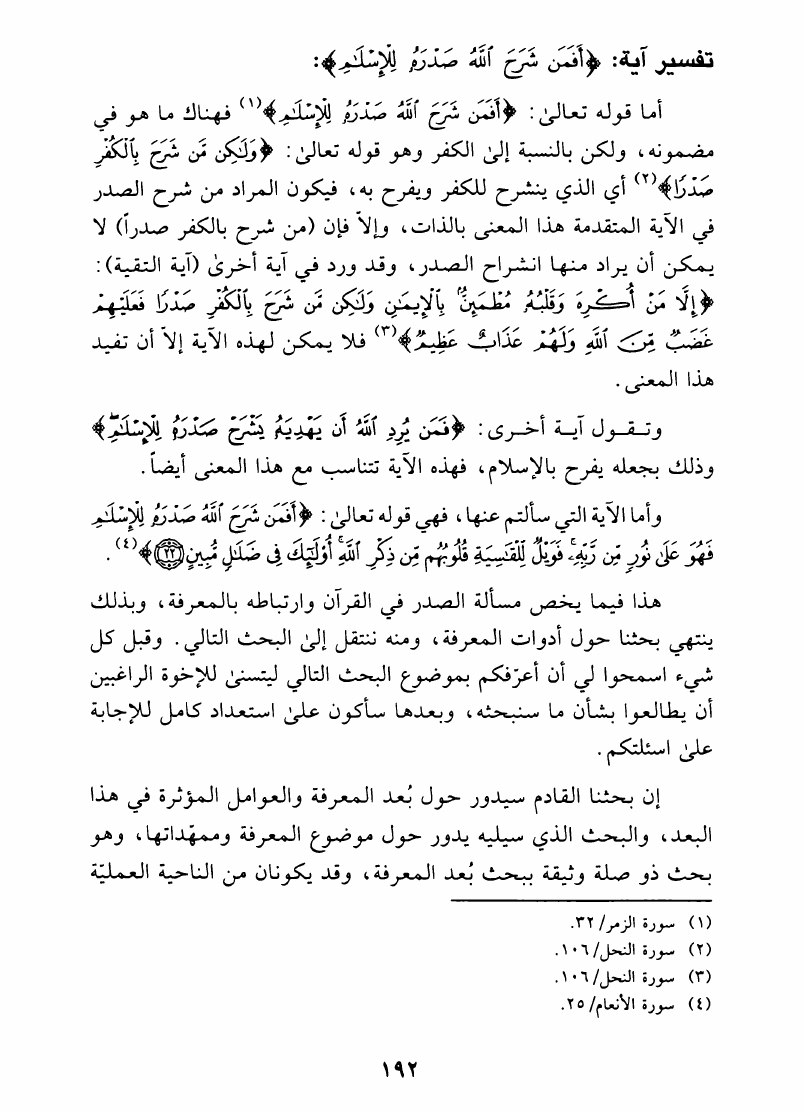 تفسير آية: ﴿أَفَمَن شَرَحَ اللَّهُ صَدْرَهُ لِلْإِسْلَٰمِ﴾:
أما قوله تعالىٰ: ﴿أَفَمَن شَرَحَ اللَّهُ صَدْرَهُ لِلْإِسْلَٰمِ﴾(١) فهناك ما هو في
مضمونه، ولكن بالنسبة إلىٰ الكفر وهو قوله تعالىٰ: ﴿وَلَٰكِن مَّن شَرَحَ بِالْكُفْرِ
صَدْرًا﴾(٢) أي الذي ينشرح للكفر ويفرح به، فيكون المراد من شرح الصدر
في الآية المتقدمة هذا المعنى بالذات، وإلاّ فإن (من شرح بالكفر صدراً) لا
يمكن أن يراد منها انشراح الصدر، وقد ورد في آية أخرىٰ (آية التقية):
﴿إِلَّا مَنْ أُكْرِهَ وَقَلْبُهُ مُطْمَئِنٌّ بِالْإِيمَٰنِ وَلَٰكِن مَّن شَرَحَ بِالْكُفْرِ صَدْرًا فَعَلَيْهِمْ
غَضَبٌ مِّنَ اللَّهِ وَلَهُمْ عَذَابٌ عَظِيمٌ﴾(٣) فلا يمكن لهذه الآية إلاّ أن تفيد
هذا المعنى.
وتـقـول آيـة أخـرى: ﴿فَمَن يُرِدِ اللَّهُ أَن يَهْدِيَهُ يَشْرَحْ صَدْرَهُ لِلْإِسْلَٰمِ ۖ﴾
وذلك بجعله يفرح بالإسلام، فهذه الآية تتناسب مع هذا المعنى أيضاً.
وأما الآية التي سألتم عنها، فهي قوله تعالىٰ: ﴿أَفَمَن شَرَحَ اللَّهُ صَدْرَهُ لِلْإِسْلَٰمِ
فَهُوَ عَلَىٰ نُورٍ مِّن رَّبِّهِ ۚ فَوَيْلٌ لِّلْقَٰسِيَةِ قُلُوبُهُم مِّن ذِكْرِ اللَّهِ ۚ أُوْلَٰٓئِكَ فِى ضَلَٰلٍ مُّبِينٍ ٢٢﴾(٤).
هذا فيما يخص مسألة الصدر في القرآن وارتباطه بالمعرفة، وبذلك
ينتهي بحثنا حول أدوات المعرفة، ومنه ننتقل إلىٰ البحث التالي. وقبل كل
شيء اسمحوا لي أن أعرّفكم بموضوع البحث التالي ليتسنىٰ للإخوة الراغبين
أن يطالعوا بشأن ما سنبحثه، وبعدها سأكون علىٰ استعداد كامل للإجابة
علىٰ اسئلتكم.
إن بحثنا القادم سيدور حول بُعد المعرفة والعوامل المؤثرة في هذا
البعد، والبحث الذي سيليه يدور حول موضوع المعرفة وممهّداتها، وهو
بحث ذو صلة وثيقة ببحث بُعد المعرفة، وقد يكونان من الناحية العمليّة
(١) سورة الزمر/٣٢.
(٢) سورة النحل/١٠٦.
(٣) سورة النحل/١٠٦.
(٤) سورة الأنعام/٢٥.
١٩٢